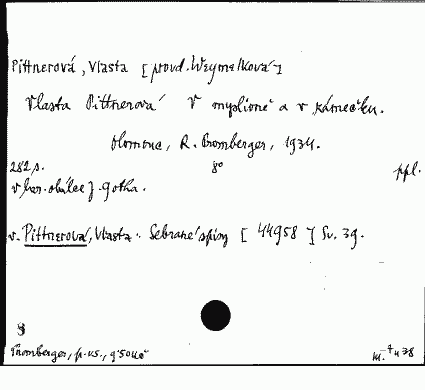 Pittnerová, Vlasta [provd. Weymelková]
Vlasta Pittnerová V myslivně a v zámečku.
Olomouc, R. Promberger, 1934.
282 s. 8° ppl.
v bar. obálce J. Gotha.
v. Pittnerová, Vlasta: Sebrané spisy [44958] Sv. 39.
8
Promberger, p.vs.,